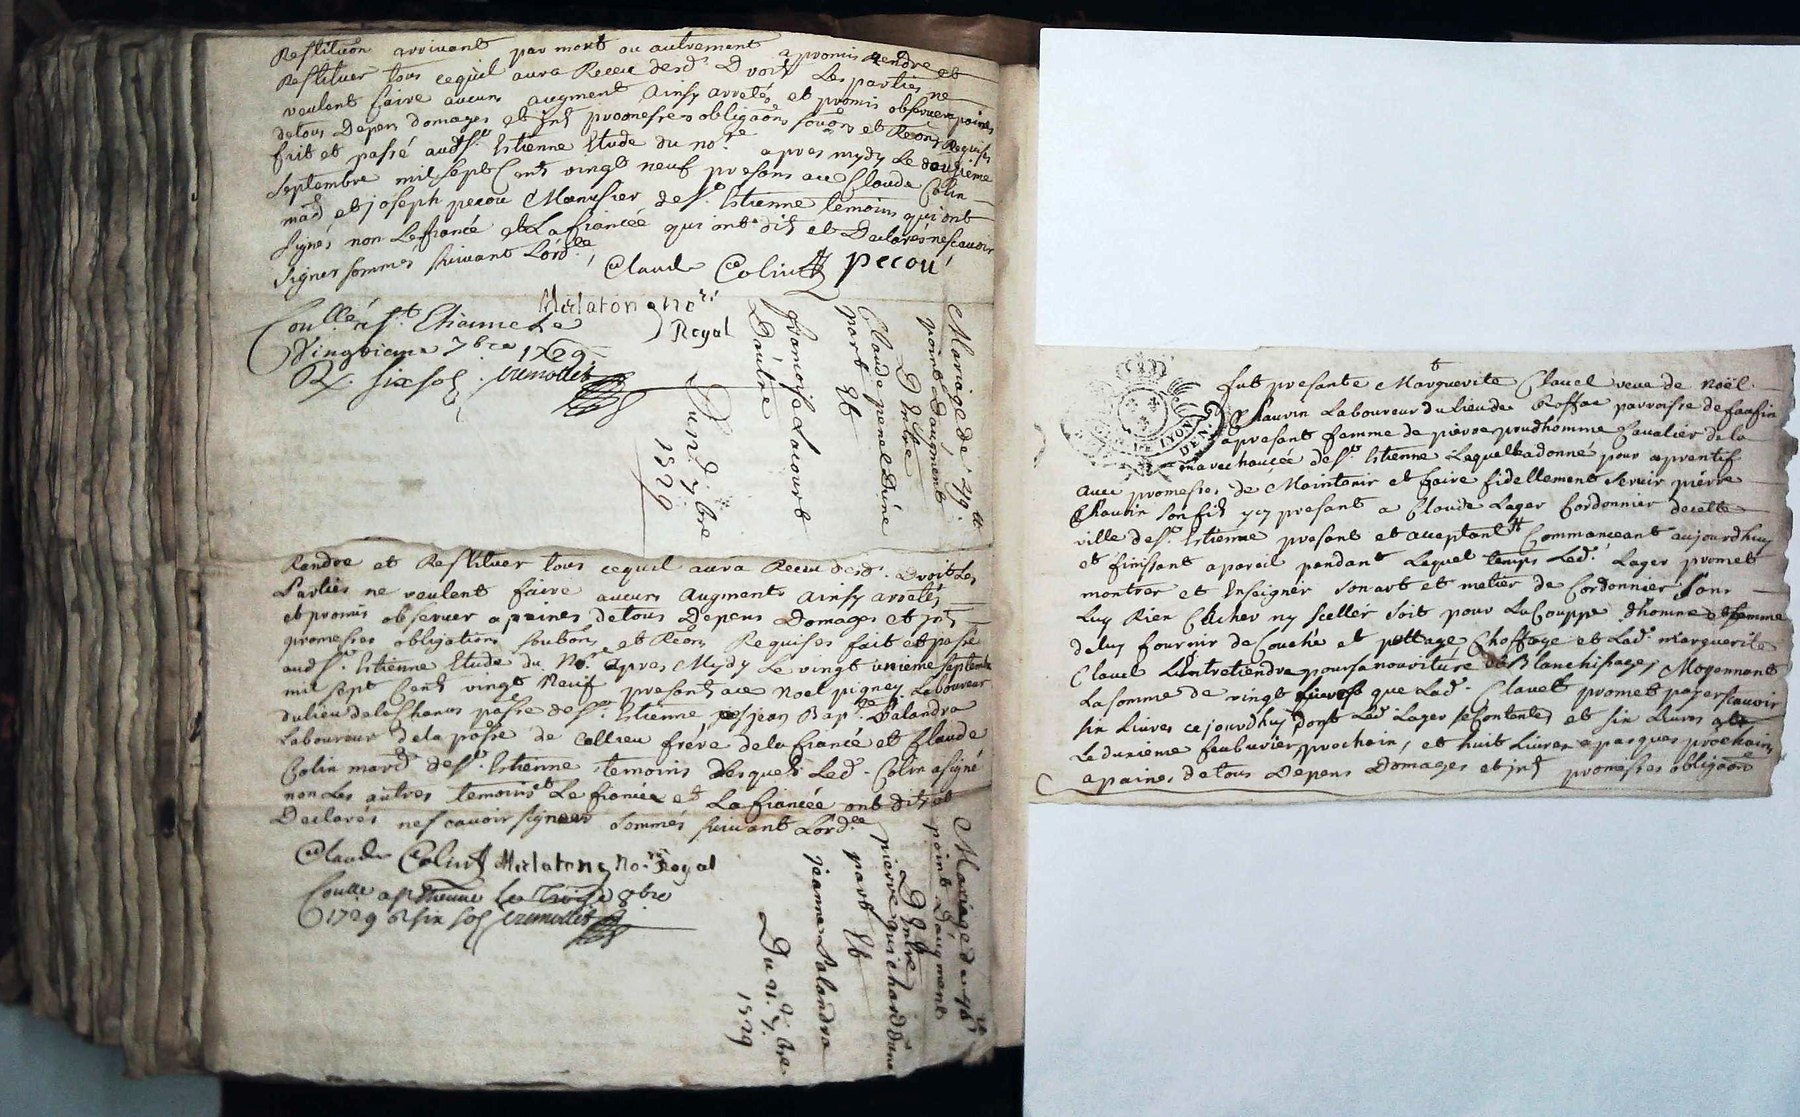 Restituōn arrivant par mort ou autrement a promis Rendre et
Restituer tous cequil aura Receu desd. D voits Les parties ne
veulent faire aucuns augment Ainsy arretés et promis observer a paines
detous Depens domages et Jnts promesses obligaōns souōns et Reōns Requises
fait et passé audt St. Estienne Etude du nore. apres mydy Le douzieme
Septembre mil sept Cents vingt neuf presans ace Claude Colin
mard et joseph pecou Menusier de St. Estienne temoins qui ont
signés non Le fiancé et La fiancée qui ont dits et Declarés nescavoir
signer sommés suivant L'ordce,
Claude Colin pecou
Merlaton nore
Royal
Coullé a St. Etienne Le
Vingtieme 7bre 1729
R. six sols
Mariage de
point D'augment
D'Entre
Claude penel D'une
part Et
francoise Lacourt
D'autre
Du 7bre
1729
Rendre et Restituer tous cequil aura Receu desd. Droits Les
Parties ne veulent faire aucuns Augments ainsy arretés
et promis observer a paines detous Depens Domages et jnts
promesses obligations soubōns et Reōns Requises fait et passé
audt St. Estienne Etude du Nore. apres Mydy Le vingt unieme septembre
mil sept Cents vingt Neuf presents ace noel pigney Laboureur
du lieu dela Chaux passe de St. Estienne jean Bapte. Palandra
Laboureur dela passe de Callieu frére de la fiancée et Claude
Colin mard de St. Estienne temoins desquels Led. Colin a signé
non Les autres temoins Le fiancée et La fiancée ont dits et
Declarés nescavoir signer sommés suivant L'ordce
Claude Colin Merlaton Nore Royal
Coullé a St Etienne Le Trois 8bre
1729 R six sols
Mariage de
point D'augment
D'Entre
pierre guichard D'une
part Et
jeanne Palandra
Du 21. 7.bre
1729
LYON
DEN.
fut presante Marguerite Clavel veuve de Noël
Chauvin Laboureur du lieu de Roffat parroisse de
apresant femme de pierre prudhomme Cavalier de la
marechaucée de St. Estienne Laquelle a donné pour aprentif
avec promesses de Maintenir et faire fidellement servir pierre
Chauvin son fils ycy presant a Claude Lager Cordonnier decette
ville de St. Estienne presant et aceptant Commanceant aujourdhuy
et finissant apareil pendant Lequel temps Led. Lager promet
montrer et Enseigner son art et metier de Cordonnier sans
Luy Rien Cacher ny sceller soit pour La Couppe dhomme et femme
deluy fournir de Couche et pottage Choffage et Lad. Marguerite
Clavel Lentretiendra pour sa nouriture et Blanchissage, Moyennant
La somme de vingt Livres que Lad. Clavel promet payer scavoir
six Livres ce jourdhuy dont Led. Lager se Contente et six Livres
Le dunième febuvrier prochain, et huit Livres a pasques prochain
a paines detous Depens Domages et jnts promesses obligaōns